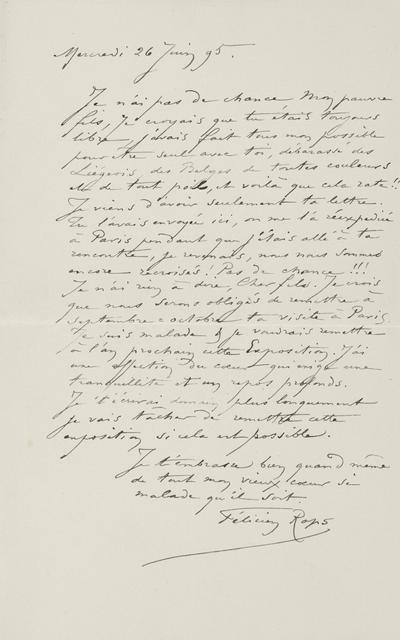 Mercredi 26 Juin 95.
Je n'ai pas de chance Mon pauvre
fils, Je croyais que tu étais toujours
libre, j'avais fait tous mon possible
pour être seul avec toi, débarassé des
Liégeois, des Belges de toutes couleurs
et de tout poils, et voilà que cela rate!!
Je viens d'avoir seulement ta lettre.
Tu l'avais envoyée ici, on me l'a réexpédiée
à Paris pendant que j'étais allé à ta
rencontre, je revenais, nous nous sommes
encore recroisés! Pas de chance!!!
Je n'ai rien à dire, Cher fils. Je crois
que nous serons obligés de remettre à
septembre octobre ta visite à Paris.
Je suis malade & je voudrais remettre
à l'an prochain cette Exposition. J'ai
une affection du cœur qui exige une
tranquillité et un repos profonds.
Je t'écrirai demain plus longuement
je vais tâcher de remettre cette
exposition si cela est possible.
Je t'embrasse bien quand même
de tout mon vieux cœur si
malade qu'il soit.
Félicien Rops